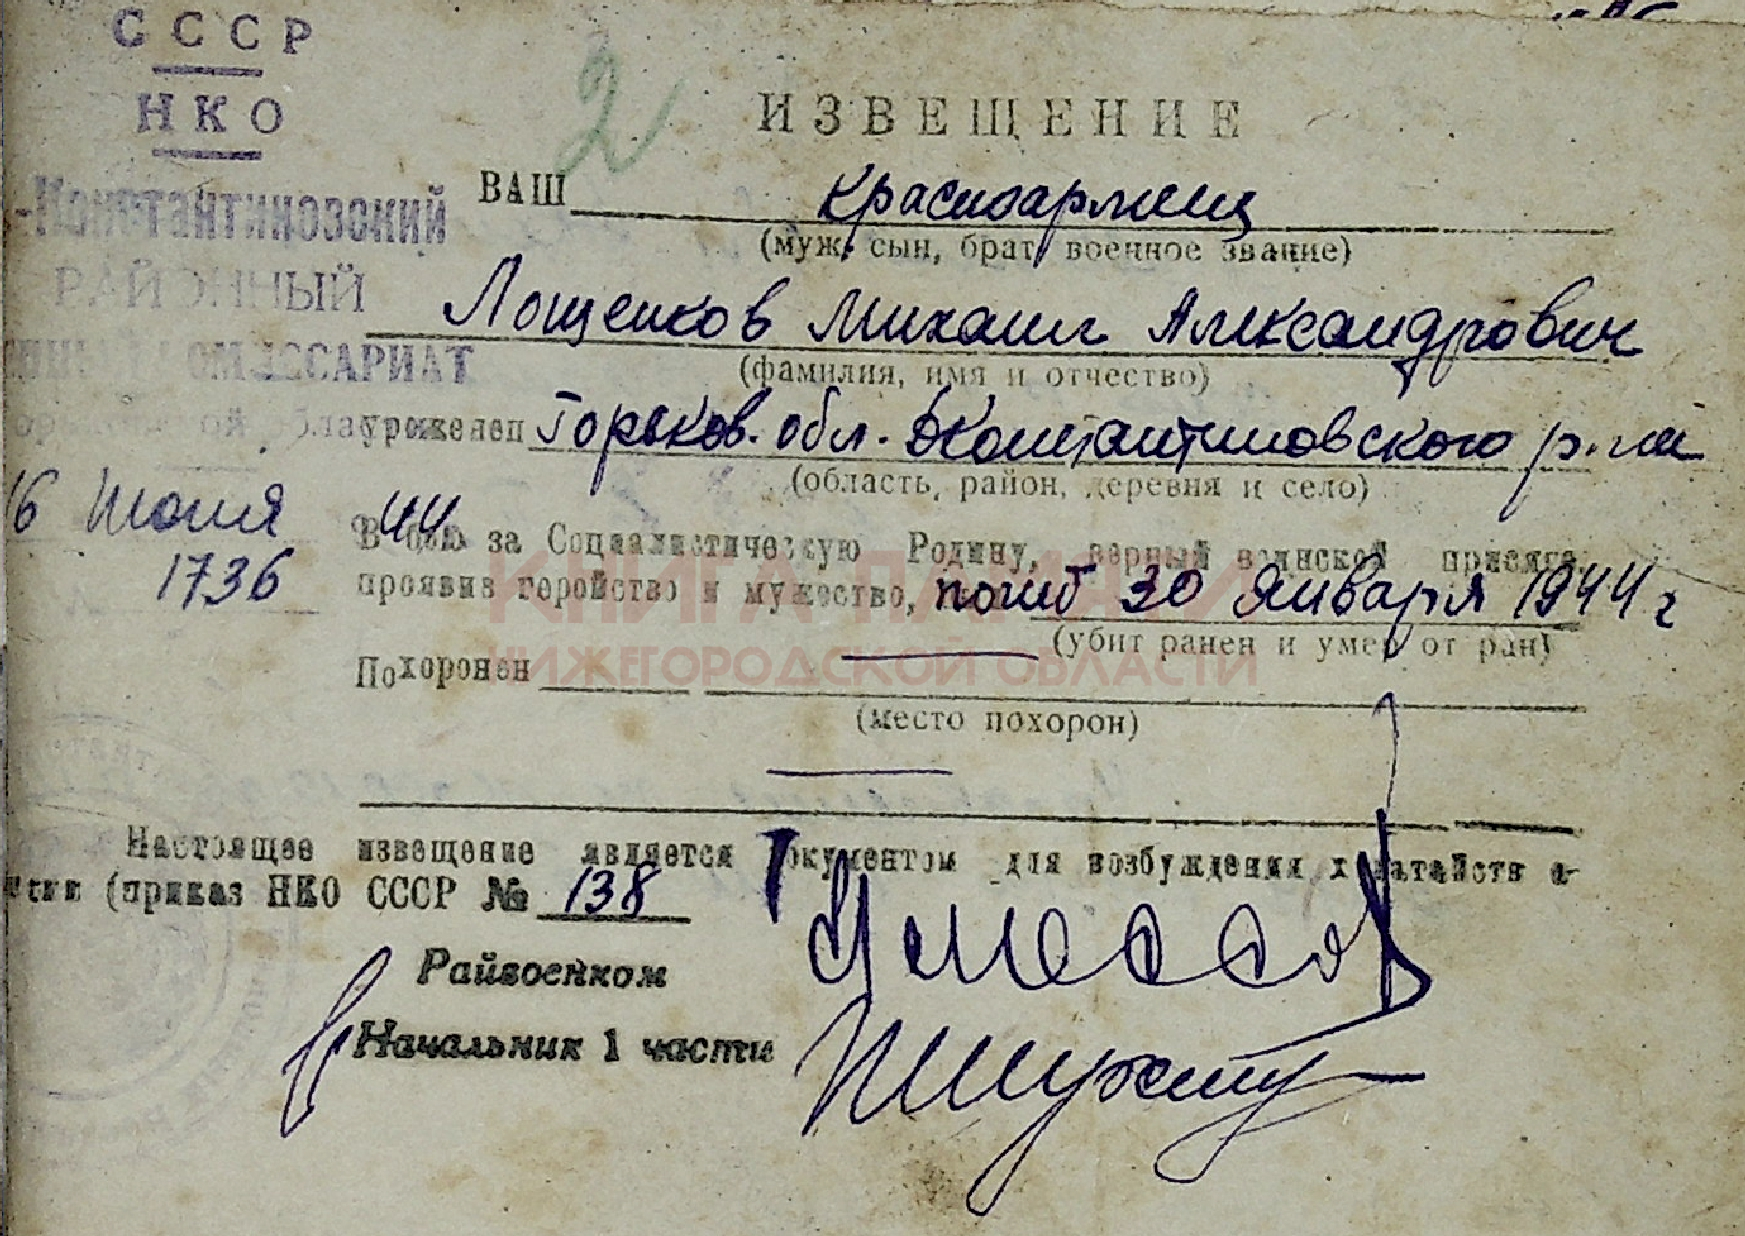 СССР
НКО
Д-Константиновский
РАЙОННЫЙ
КОМИССАРИАТ
16 Июня 44
1736
2
ИЗВЕЩЕНИЕ
ВАШ красноармеец
(муж, сын, брат, военное звание)
Лощенков Михаил Александрович
(фамилия, имя и отчество)
уроженец Горьков. обл. Д Константиновского р.на
(область, район, деревня и село)
В бою за Социалистическую Родину, верный воинской присяге,
проявив геройство и мужество, погиб 30 января 1944 г
(убит ранен и умер от ран)
Похоронен
(место похорон)
Настоящее извещение является документом для возбуждения ходатайств о
(приказ НКО СССР № 138
Райвоенком
Начальник 1 части
КНИГА ПАМЯТИ
НИЖЕГОРОДСКОЙ ОБЛАСТИ